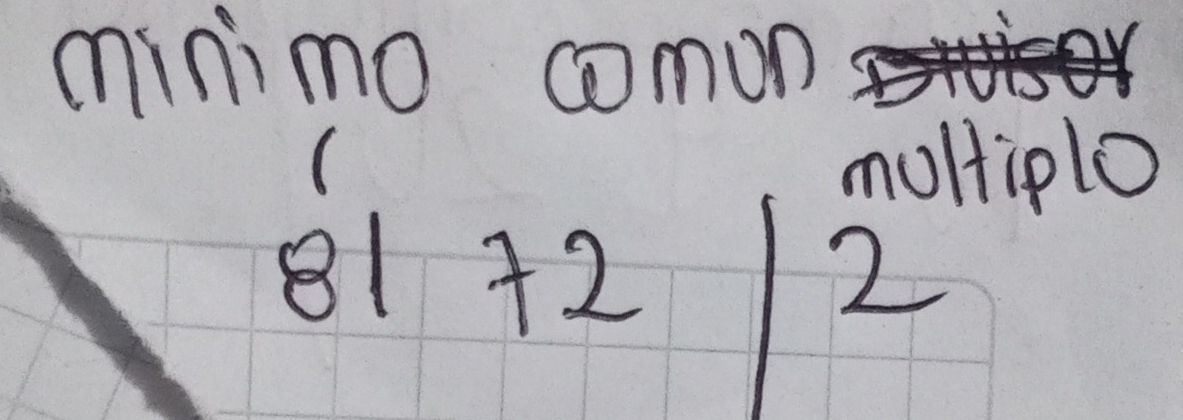 minimo comun Divisor
multiplo
81 72 | 2